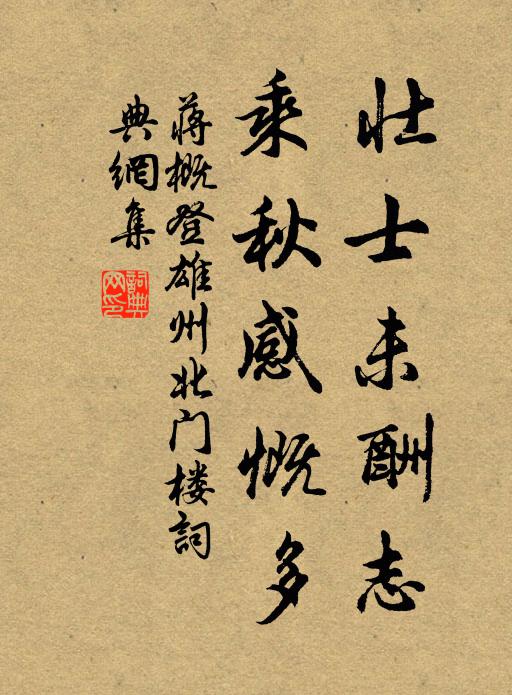 壮士未酬志
乘秋感慨多
蒋概登雄州北门楼詞
典網集
詞典
网印